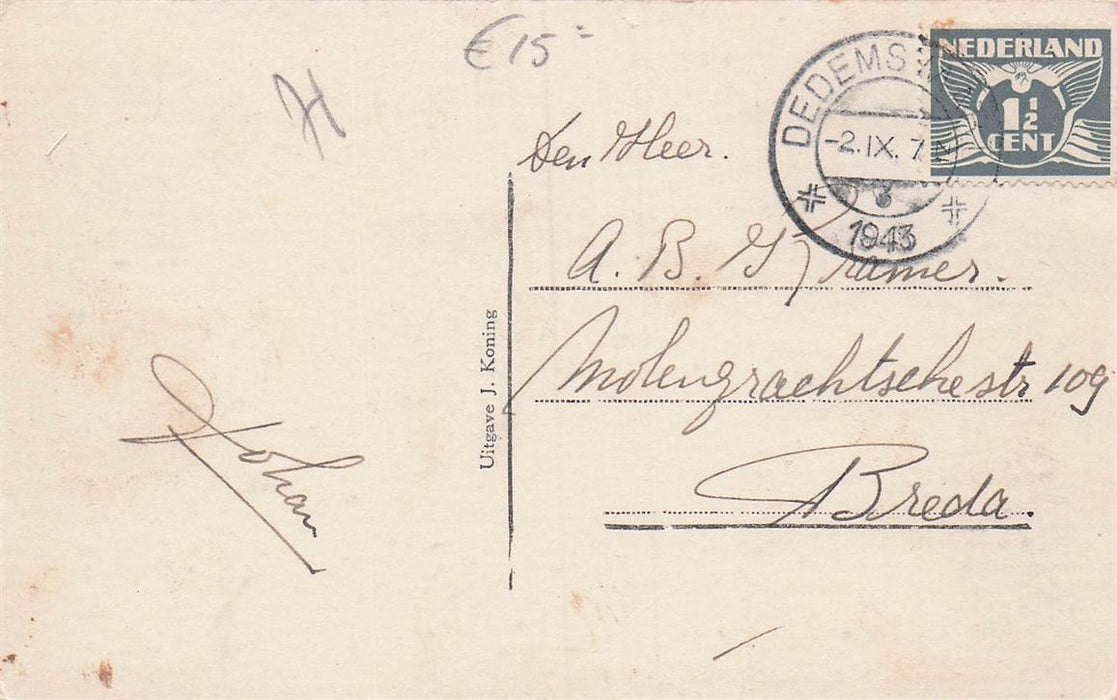 € 15 =
H
NEDERLAND
1½
CENT
DEDEMS
-2.IX. 7 N
3
1943
Den Heer.
A. B. Kramer.
Molengrachtschestr 109
Breda.
Uitgave J. Koning
Johan